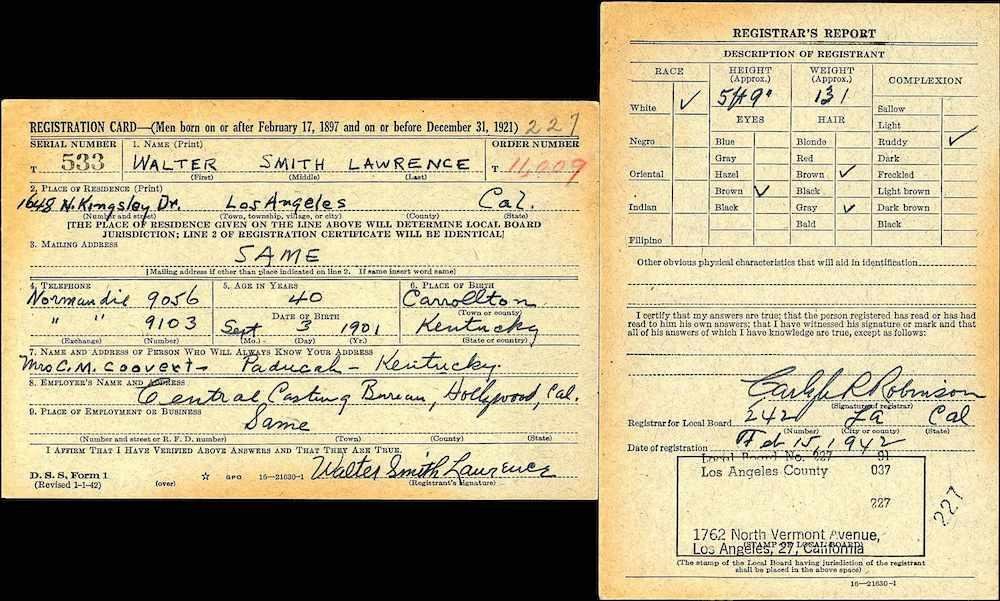 REGISTRATION CARD—(Men born on or after February 17, 1897 and on or before December 31, 1921) 227
SERIAL NUMBER 1. NAME (Print) ORDER NUMBER
T 533 WALTER SMITH LAWRENCE T 11,009
(First) (Middle) (Last)
2. PLACE OF RESIDENCE (Print)
1648 N. Kingsley Dr. Los Angeles Cal.
(Number and street) (Town, township, village, or city) (County) (State)
[THE PLACE OF RESIDENCE GIVEN ON THE LINE ABOVE WILL DETERMINE LOCAL BOARD
JURISDICTION; LINE 2 OF REGISTRATION CERTIFICATE WILL BE IDENTICAL]
3. MAILING ADDRESS
SAME
[Mailing address if other than place indicated on line 2. If same insert word same]
4. TELEPHONE 5. AGE IN YEARS 6. PLACE OF BIRTH
Normandie 9056 40 Carrollton
DATE OF BIRTH (Town or county)
" " 9103 Sept 3 1901 Kentucky
(Exchange) (Number) (Mo.) (Day) (Yr.) (State or country)
7. NAME AND ADDRESS OF PERSON WHO WILL ALWAYS KNOW YOUR ADDRESS
Mrs C. M. Coovert - Paducah - Kentucky.
8. EMPLOYER'S NAME AND ADDRESS
Central Casting Bureau, Hollywood, Cal.
9. PLACE OF EMPLOYMENT OR BUSINESS
Same
(Number and street or R. F. D. number) (Town) (County) (State)
I AFFIRM THAT I HAVE VERIFIED ABOVE ANSWERS AND THAT THEY ARE TRUE.
Walter Smith Lawrence
D. S. S. Form 1 GPO 16—21630-1 (Registrant's signature)
(Revised 1-1-42) (over)
REGISTRAR'S REPORT
DESCRIPTION OF REGISTRANT
RACE HEIGHT (Approx.) WEIGHT (Approx.) COMPLEXION
White ✓ 5 ft 9" 131 Sallow
EYES HAIR Light
Negro Blue Blonde Ruddy ✓
Gray Red Dark
Oriental Hazel Brown ✓ Freckled
Brown ✓ Black Light brown
Indian Black Gray ✓ Dark brown
Bald Black
Filipino
Other obvious physical characteristics that will aid in identification
I certify that my answers are true; that the person registered has read or has had
read to him his own answers; that I have witnessed his signature or mark and that
all of his answers of which I have knowledge are true, except as follows:
R Robinson
(Signature of registrar)
Registrar for Local Board 242 LA Cal
(Number) (City or county) (State)
Date of registration Feb 15, 1942
Local Board No. 227 91
Los Angeles County 037
227
227
1762 North Vermont Avenue,
Los Angeles, 27, California
(STAMP OF LOCAL BOARD)
(The stamp of the Local Board having jurisdiction of the registrant
shall be placed in the above space)
16—21630-1